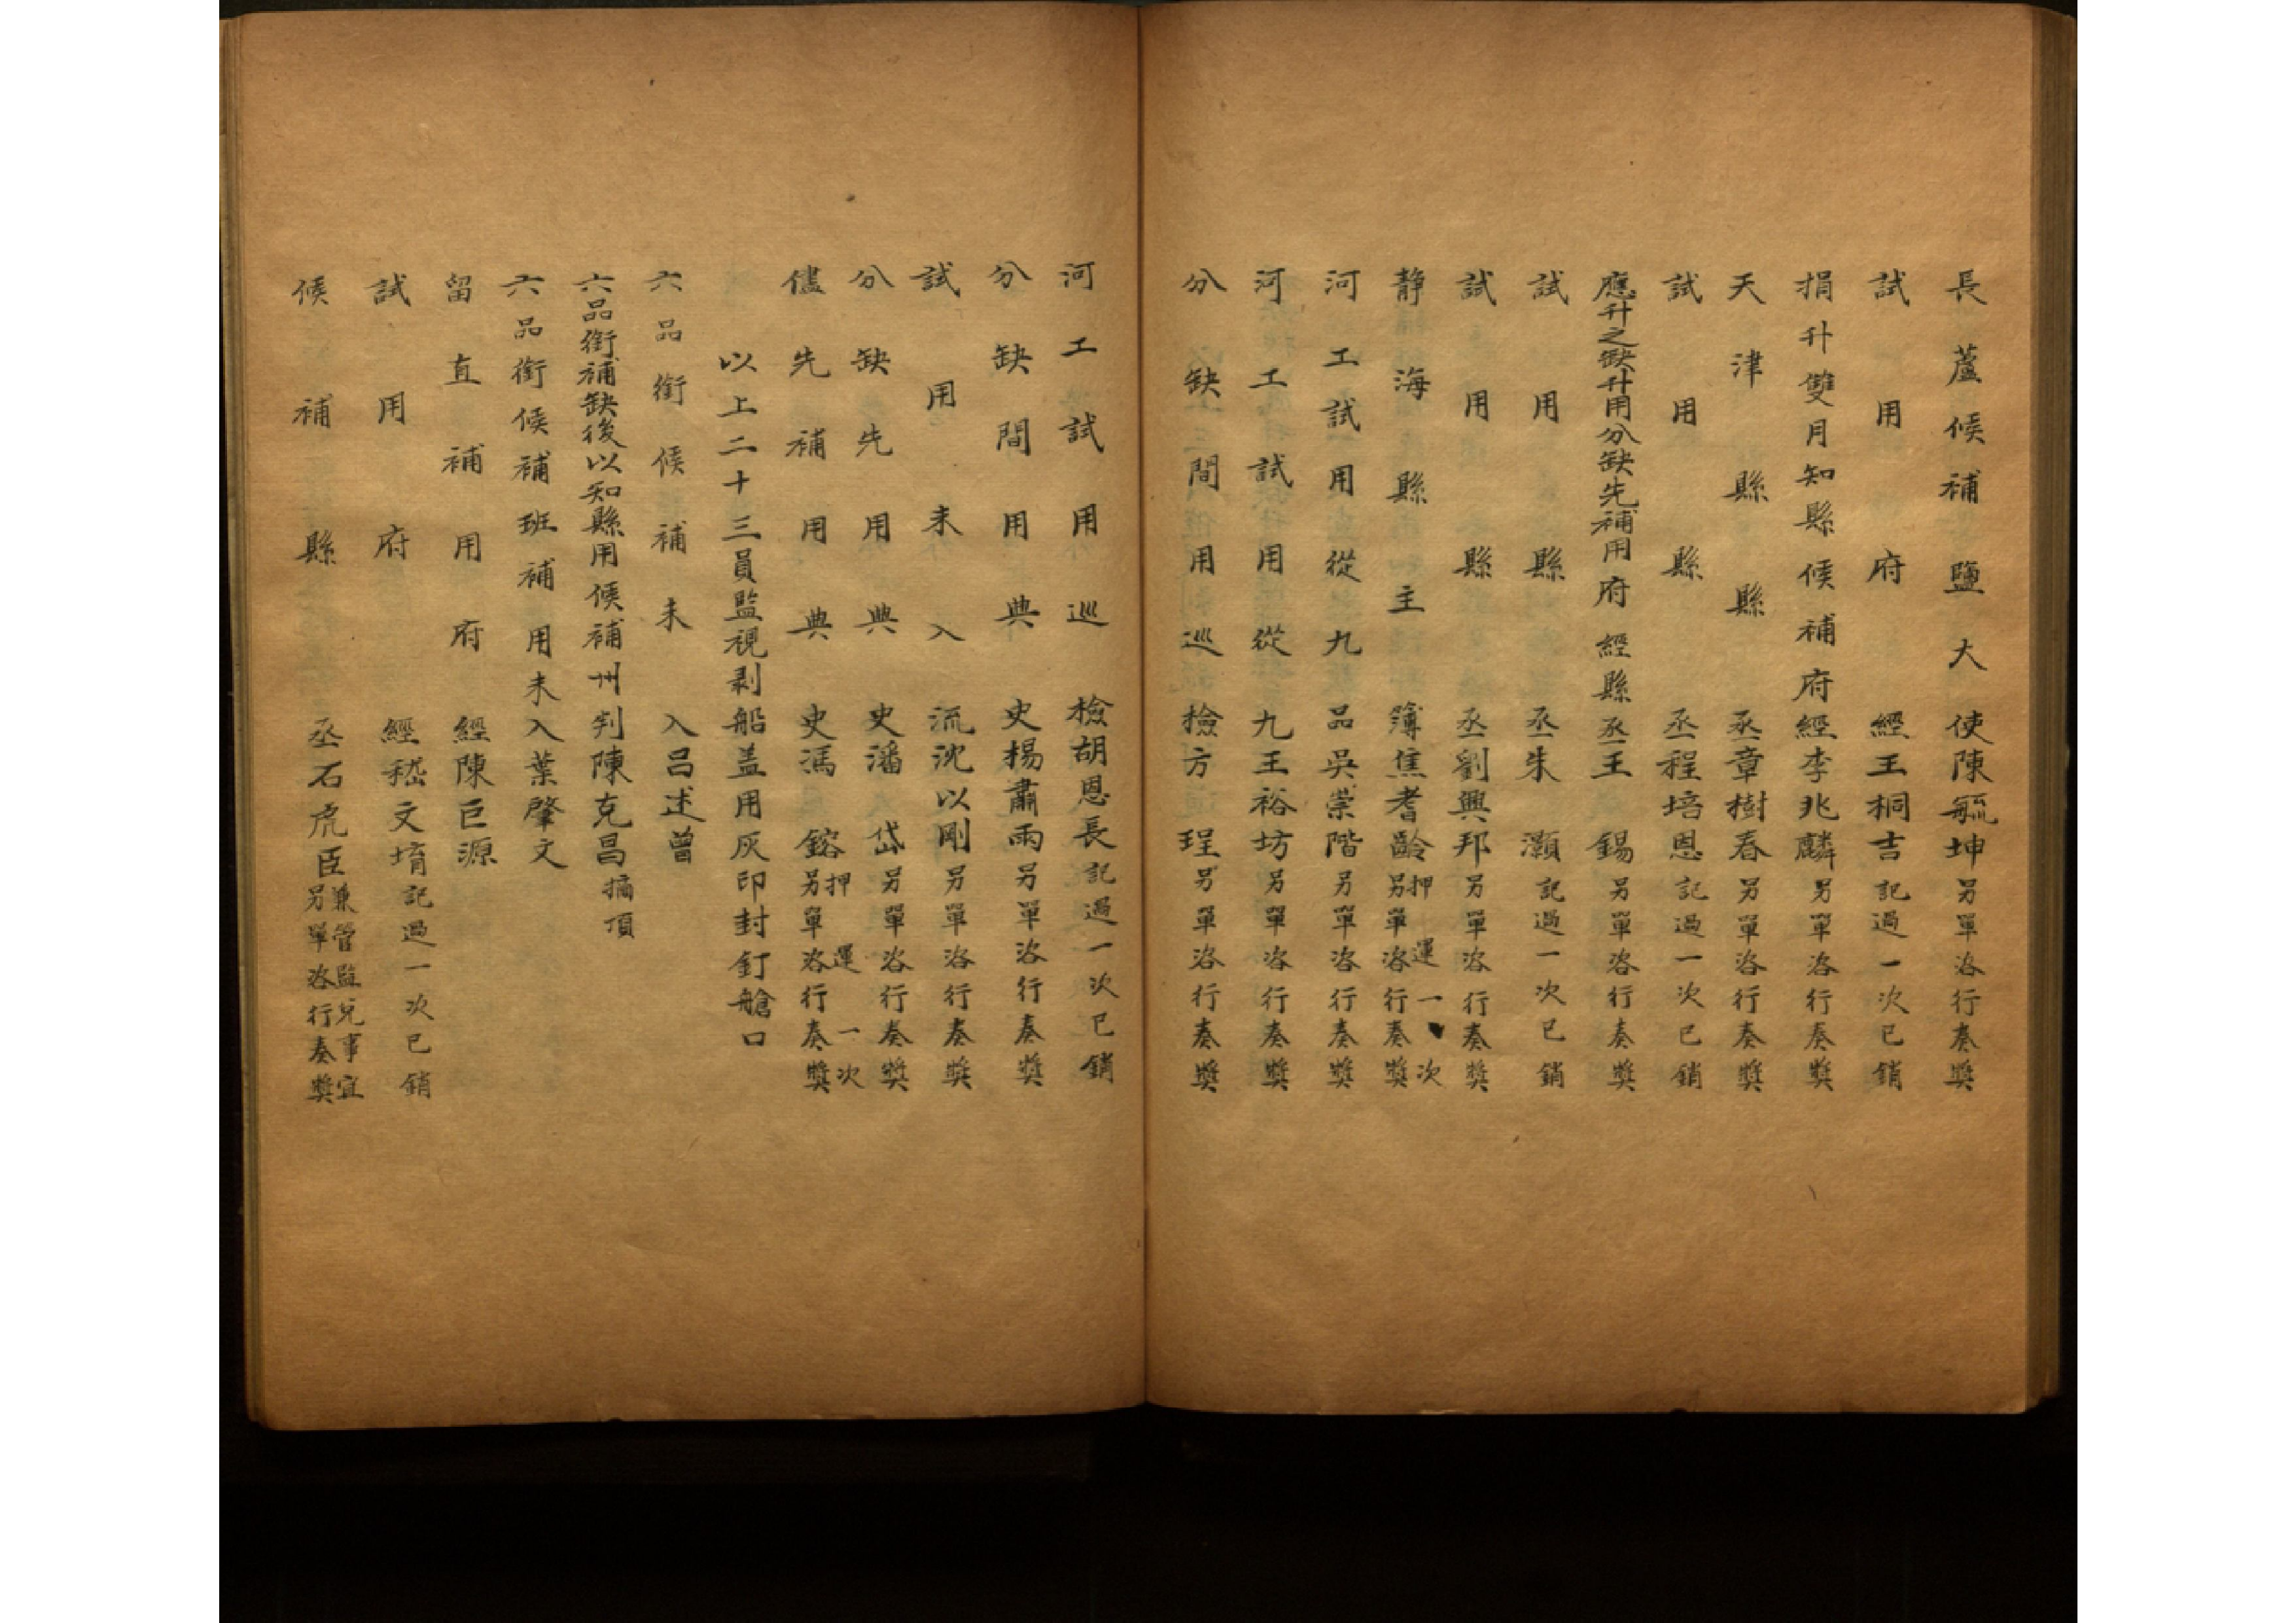 長蘆候補鹽大使陳毓坤另單洛行奏獎
試用府經王桐吉記過一次已銷
捐升雙月知縣候補府經李兆麟另單洛行奏獎
天津縣縣丞章樹春另單洛行奏獎
試用縣丞程培恩記過一次已銷
應升之缺升用分缺先補用府經縣丞王錫另單洛行奏獎
試用縣丞朱灝記過一次已銷
試用縣丞劉興邦另單洛行奏獎
靜海縣主簿焦耆齡押運一次另單洛行奏獎
河工試用從九品吳崇階另單洛行奏獎
河工試用從九王裕坊另單洛行奏獎
分缺間用巡檢方珵另單洛行奏獎
河工試用巡檢胡恩長記過一次已銷
分缺間用典史楊肅雨另單洛行奏獎
試用未入流沈以剛另單洛行奏獎
分缺先用典史潘岱另單洛行奏獎
儘先補用典史馮鎔押運一次另單洛行奏獎
以上二十三員監視剥船盖用灰印封釘艙口
六品銜候補未入呂述曾
六品銜補缺後以知縣用候補州判陳克昌摘頂
六品銜候補班補用未入葉肇文
留直補用府經陳巨源
試用府經嵇文堉記過一次已銷
候補縣丞石虎臣兼管監兌事宜另單洛行奏獎